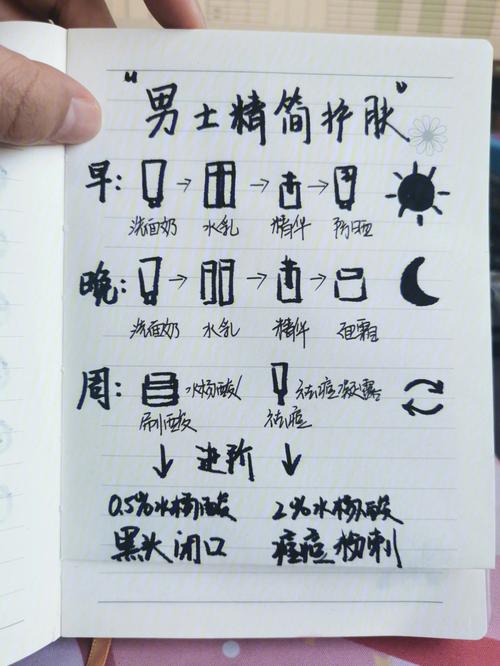 "男士精简护肤"
早: → → →
洗面奶 水乳 精华 防晒
晚: → → →
洗面奶 水乳 精华 面霜
周: 水杨酸 祛痘凝露
刷酸 祛痘
↓ 进阶 ↓
0.5%水杨酸 2%水杨酸
黑头闭口 痘痘粉刺